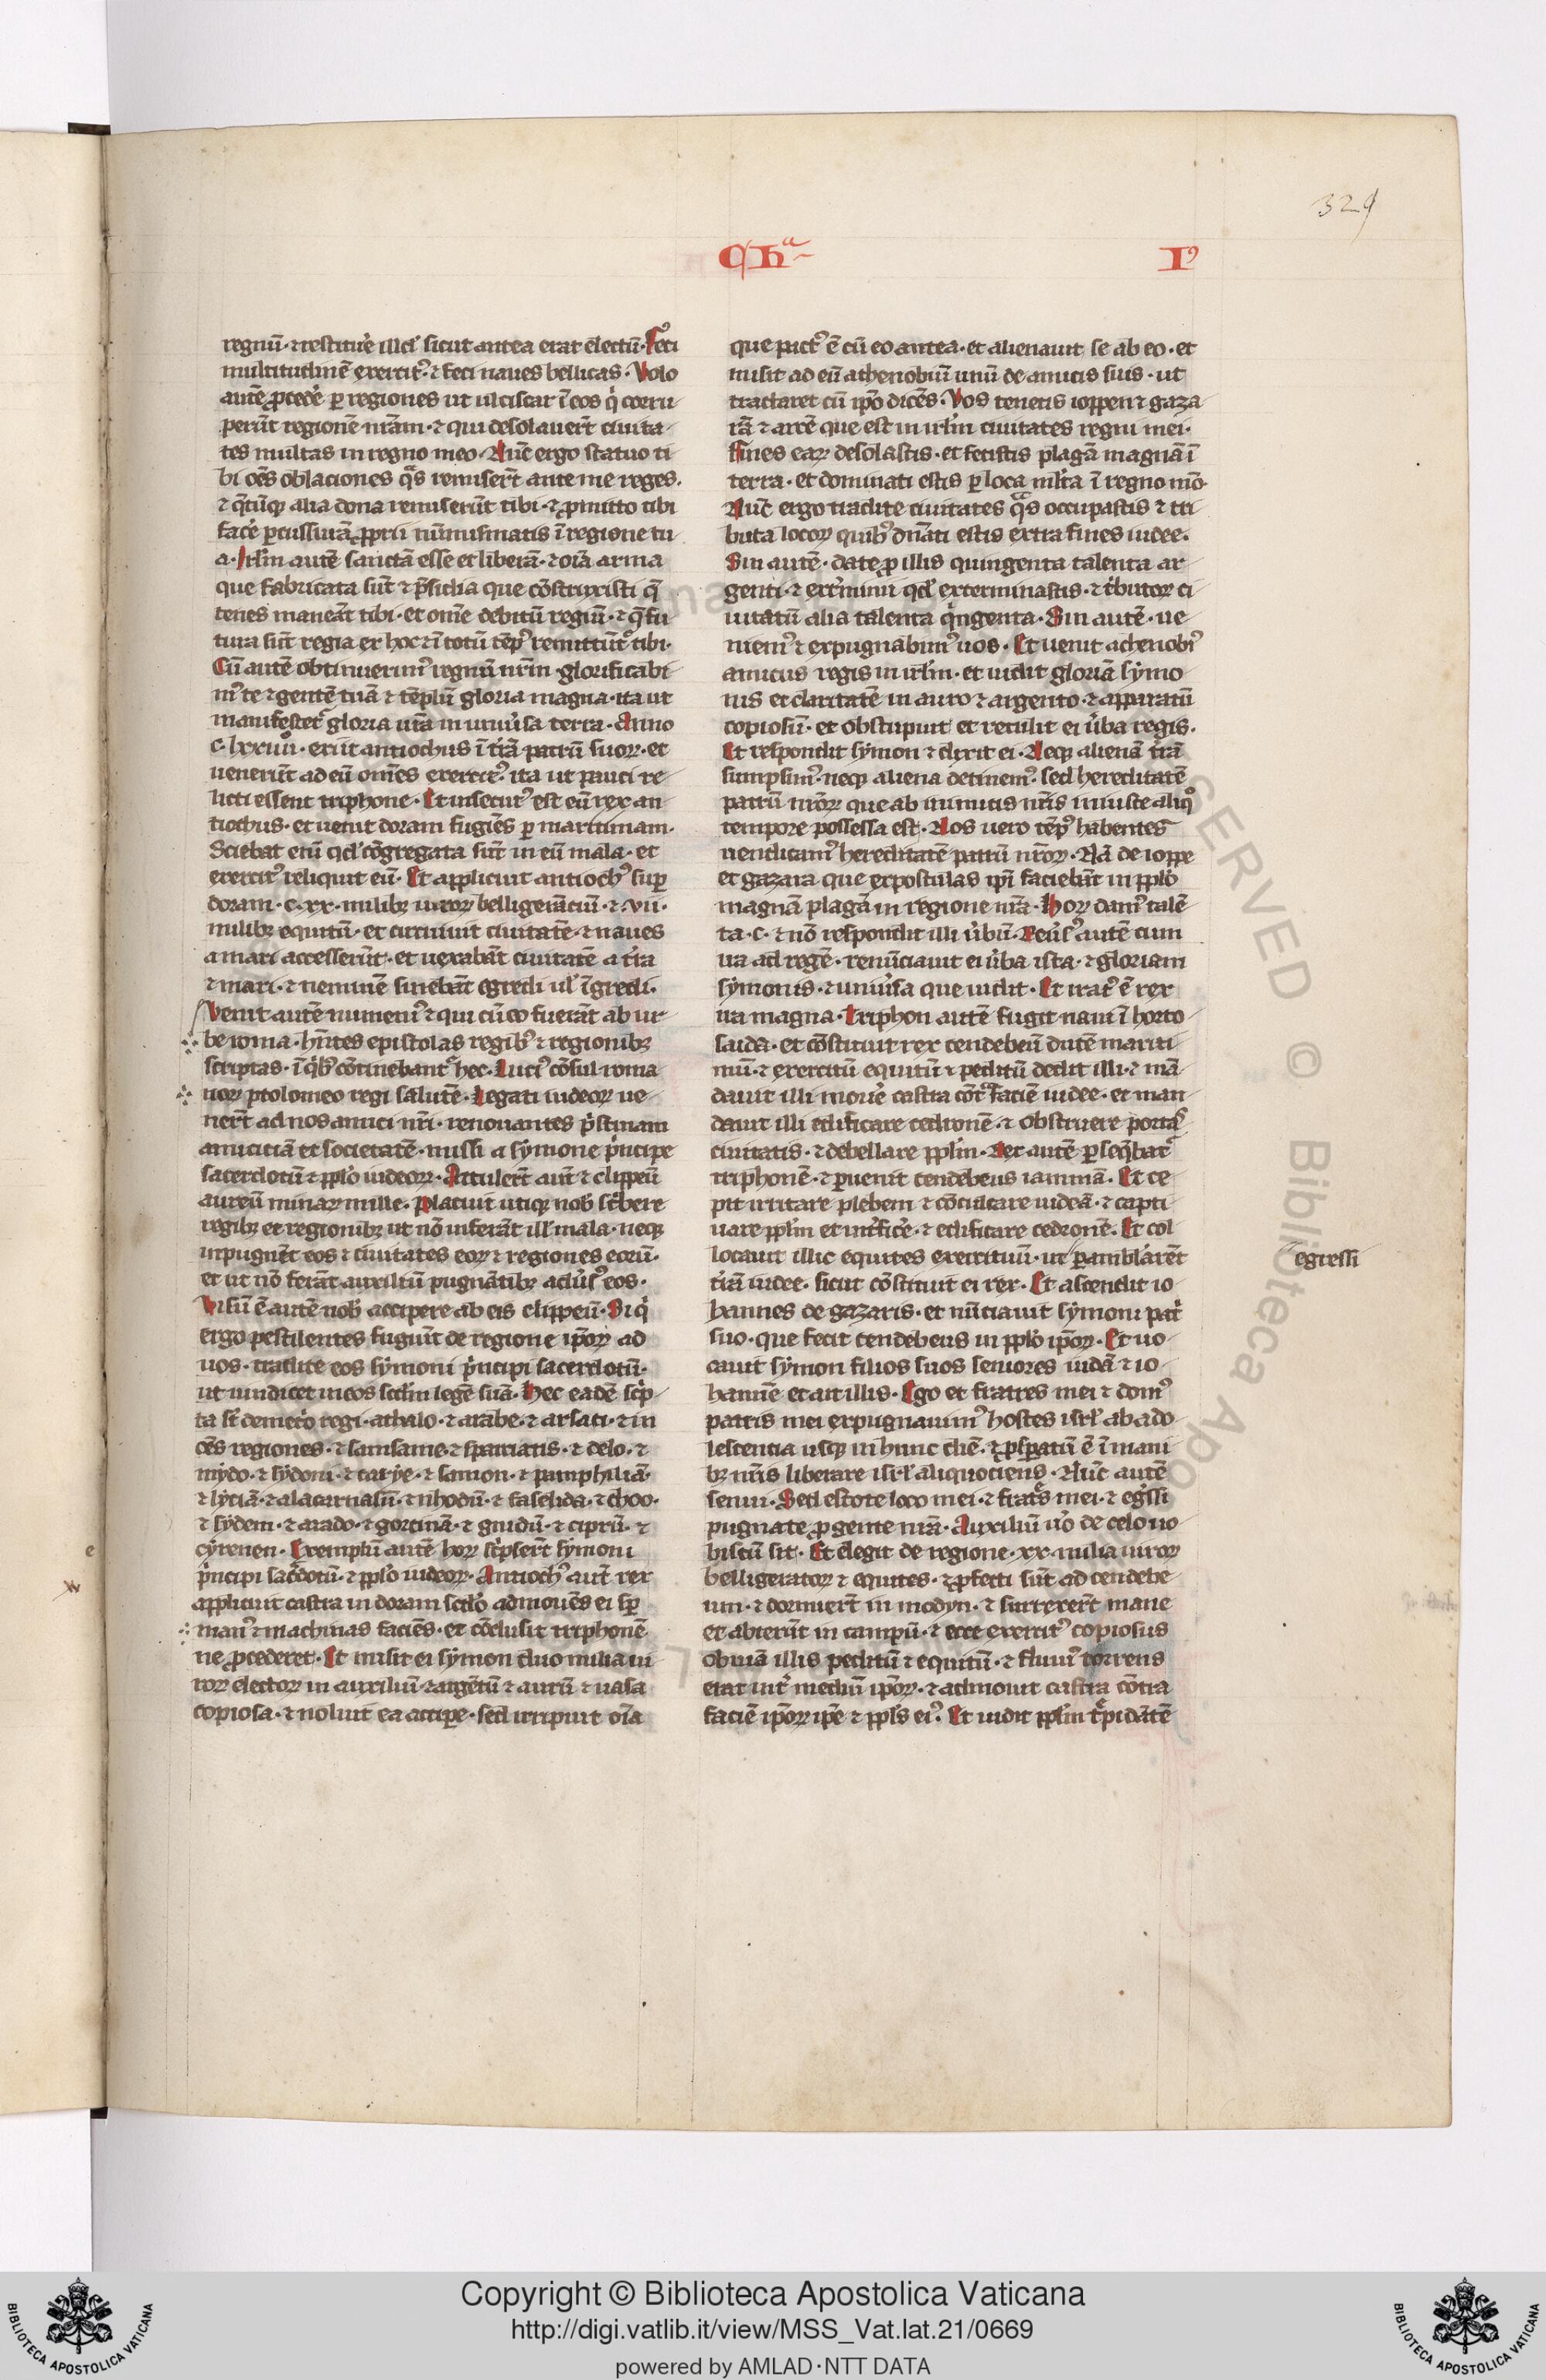 329
Cha I9
regnū · ⁊ restituē̓ illd̓ sicut antea erat electū · Feci
multitudinē exercit᷒ · ⁊ feci naues bellicas · Volo
autē ꝓcede̓ ꝑ regiones ut ulciscar ī eos q̓ corru
perūt regionē nr̄am · ⁊ qui desolauer̄t ciuita
tes multas in regno meo · Nūc ergo statuo ti
bi oēs oblaciones q̄s remiser̄t ante me reges ·
⁊ q̄cūqꝫ alia dona remiserūt tibi · ⁊ ꝓmitto tibi
face̓ ꝑcussurā ꝓprii nūmismatis ī regione tu
a · Irl̄m autē sanctā esse et liberā · ⁊ oīa arma
que fabricata sūt ⁊ p̄sidia que cōstruxisti q̄
tenes maneāt tibi · et omē debitū regiū · ⁊ q̄ fu
tura sūt regia ex hoc ⁊ ī totū tēp᷒ remittūt᷒ tibi ·
Cū autē obtinuerim᷒ regnū nr̄m · glorificabi
m᷒ te ⁊ gentē tuā ⁊ tēplū gloria magna · ita ut
manifestet᷒ gloria ur̄a in uniu̓sa terra · Anno
c · lxxiiii · exiit antiochus ī tr̄ā patrū suoꝝ · et
uenerūt ad eū omēs exercit᷒ · ita ut pauci re
licti essent triphone · Et insecut᷒ est eū rex an
tiochus · et uenit doram fugiēs ꝑ maritimam ·
Sciebat enī qd̓ cōgregata sūt in eū mala · et
exercit᷒ reliquit eū · Et applicuit antioch᷒ suꝑ
doram · c · xx · milibꝫ uiroꝝ belligerāciū · ⁊ · viii ·
milibꝫ equitū · et circuiuit ciuitatē · ⁊ naues
a mari accesserūt · et uexabāt ciuitatē a tr̄a
⁊ mari · ⁊ neminē sinebāt egredi ul̓ īgredi ·
Venit autē numeni᷒ ⁊ qui cū eo fuerāt ab ur
be roma · hn̄tes epistolas regib᷒ ⁊ regionibꝫ
scriptas · ī q̓b᷒ cōtinebant᷒ hec · Luci᷒ cōsul roma
noꝝ ptolomeo regi salutē · Legati iudeoꝝ ue
ner̄t ad nos amici nr̄i · renouantes p̓stinam
amicitiā et societatē · missi a symone p̓ncipe
sacerdotū ⁊ pplo iudeoꝝ · Attuler̄t aut̄ ⁊ clippeū
aureū minaꝝ mille · Placuit utiqꝫ nob̓ sc̓bere
regibꝫ et regionibꝫ ut nō inferāt ill̓ mala · neqꝫ
inpugnēt eos ⁊ ciuitates eoꝝ ⁊ regiones eorū ·
et ut nō ferāt auxiliū pugnātibꝫ adu̓s᷒ eos ·
Uisū ē autē nob̓ accipere ab eis clippeū · Siq̓
ergo pestilentes fugiūt de regione ip̄oꝝ ad
uos · tradite eos symoni p̓ncipi sacerdotū ·
ut uindicet in eos scd̄m legē suā · Hec eadē sc̓p
ta st̄ demet̓o regi · athalo · ⁊ arabe · ⁊ arsaci · ⁊ in
oēs regiones · ⁊ samsame · ⁊ spartiatis · ⁊ delo · ⁊
mydo · ⁊ sydoni · ⁊ carye · ⁊ samon · ⁊ pamphiliā ·
⁊ lyciā · ⁊ alacarnasū · ⁊ rhodū · ⁊ faselida · ⁊ choo ·
⁊ sydem · ⁊ arado · ⁊ gortinā · ⁊ gnidū · ⁊ ciprū · ⁊
cyrenen · Exemplū autē hoꝝ sc̓pser̄t symoni
p̓ncipi sac̓dotū · ⁊ pplo iudeoꝝ · Antioch᷒ aut̄ rex
applicuit castra in doram scd̄o admouēs ei sꝑ
man᷒ ⁊ machinas faciēs · et cōclusit triphonē
ne ꝓcederet · Et misit ei symon duo milia ui
roꝝ electoꝝ in auxiliū · ⁊ argētū ⁊ aurū ⁊ uasa
copiosa · ⁊ noluit ea accipe · sed irripuit oīa
que pact᷒ ē cū eo antea · et alienauit se ab eo · et
misit ad eū athenobiū unū de amicis suis · ut
tractaret cū ip̄o dicēs · Vos tenetis ioppen ⁊ gaza
rā ⁊ arcē que est in irl̄m ciuitates regni mei ·
fines eaꝝ desolastis · et fecistis plagā magnā ī
terra · et dominati estis ꝑ loca ml̄ta ī regno mō ·
Nūc ergo tradite ciuitates q̄s occupastis ⁊ tri
buta locoꝝ quib᷒ dn̄ati estis extra fines iudee ·
Sin autē · date ꝓ illis quingenta talenta ar
genti · ⁊ ext̓minii qd̓ exterminastis · ⁊ t̓butoꝝ ci
uitatū alia talenta q̓ngenta · Sin autē · ue
niem᷒ ⁊ expugnabim᷒ uos · Et uenit athenobi᷒
amicus regis in irl̄m · et uidit gloriā symo
nis et claritatē in auro ⁊ argento · ⁊ apparatū
copiosū · et obstupuit et retulit ei u̓ba regis ·
Et respondit symon ⁊ dixit ei · Neqꝫ alienā tr̄ā
sumpsim᷒ · neqꝫ aliena detinem᷒ · sed hereditatē
patrū nr̄oꝝ que ab inimicis nr̄is iniuste aliq̊
tempore possessa est · Nos uero tēp᷒ habentes
uendicam᷒ hereditatē patrū nr̄oꝝ · Nā de ioppe
et gazara que expostulas ip̄i faciebāt in pplo
magnā plagā in regione nr̄a · Hoꝝ dam᷒ talē
ta · c · ⁊ nō respondit illi u̓bū · Reu̓s᷒ autē cum
ira ad regē · renūciauit ei u̓ba ista · ⁊ gloriam
symonis · ⁊ uniu̓sa que uidit · Et irat᷒ ē rex
ira magna · Triphon autē fugit naui ī horto
saida · et cōstituit rex cendebeū ducē mariti
mū · ⁊ exercitū equitū ⁊ peditū dedit illi · ⁊ mā
dauit illi moue̓ castra cōt̓ faciē iudee · et man
dauit illi edificare cedronē · ⁊ obstruere portas
ciuitatis · ⁊ debellare ppl̄m · Rex autē ꝑseq̄bat᷒
triphonē · ⁊ ꝑuenit cendebeus iamniā · Et ce
pit irritare plebem ⁊ cōculcare iudeā · ⁊ capti
uare ppl̄m et int̓fice̓ · ⁊ edificare cedronē · Et col
locauit illic equites exercituū · ut ꝑamblarēt
tr̄ā iudee · sicut cōstituit ei rex · Et ascendit io
hannes de gazaris · et nūciauit symoni pat̓
suo · que fecit cendebeus in pplo ip̄oꝝ · Et uo
cauit symon filios suos seniores iudā ⁊ io
hannē et ait illis · Ego et fratres mei ⁊ dom᷒
patris mei expugnauim᷒ hostes isrl̓ ab ado
lescentia usqꝫ in hunc diē · ⁊ ꝓsꝑatū ē ī mani
bꝫ nr̄is liberare isrl̓ aliquociens · Nūc autē
senui · Sed estote loco mei · ⁊ frat̓s mei · ⁊ eg̓ssi
pugnate ꝓ gente nr̄a · Auxiliū u̓o de celo uo
biscū sit · Et elegit de regione · xx · milia uiroꝝ
belligeratoꝝ ⁊ equites · ⁊ ꝓfecti sūt ad cendebe
um · ⁊ dormier̄t in modyn · ⁊ surrexer̄t mane
et abierūt in campū · ⁊ ecce exercit᷒ copiosus
obuiā illis peditū ⁊ equitū · ⁊ fluui᷒ torrens
erat int̓ mediū ip̄oꝝ · ⁊ admouit castra cōtra
faciē ip̄oꝝ ip̄e ⁊ ppls ei᷒ · Et uidit ppl̄m t̓pidātē
egressi
Copyright © Biblioteca Apostolica Vaticana
http://digi.vatlib.it/view/MSS_Vat.lat.21/0669
powered by AMLAD·NTT DATA
BIBLIOTECA APOSTOLICA VATICANA
BIBLIOTECA APOSTOLICA VATICANA